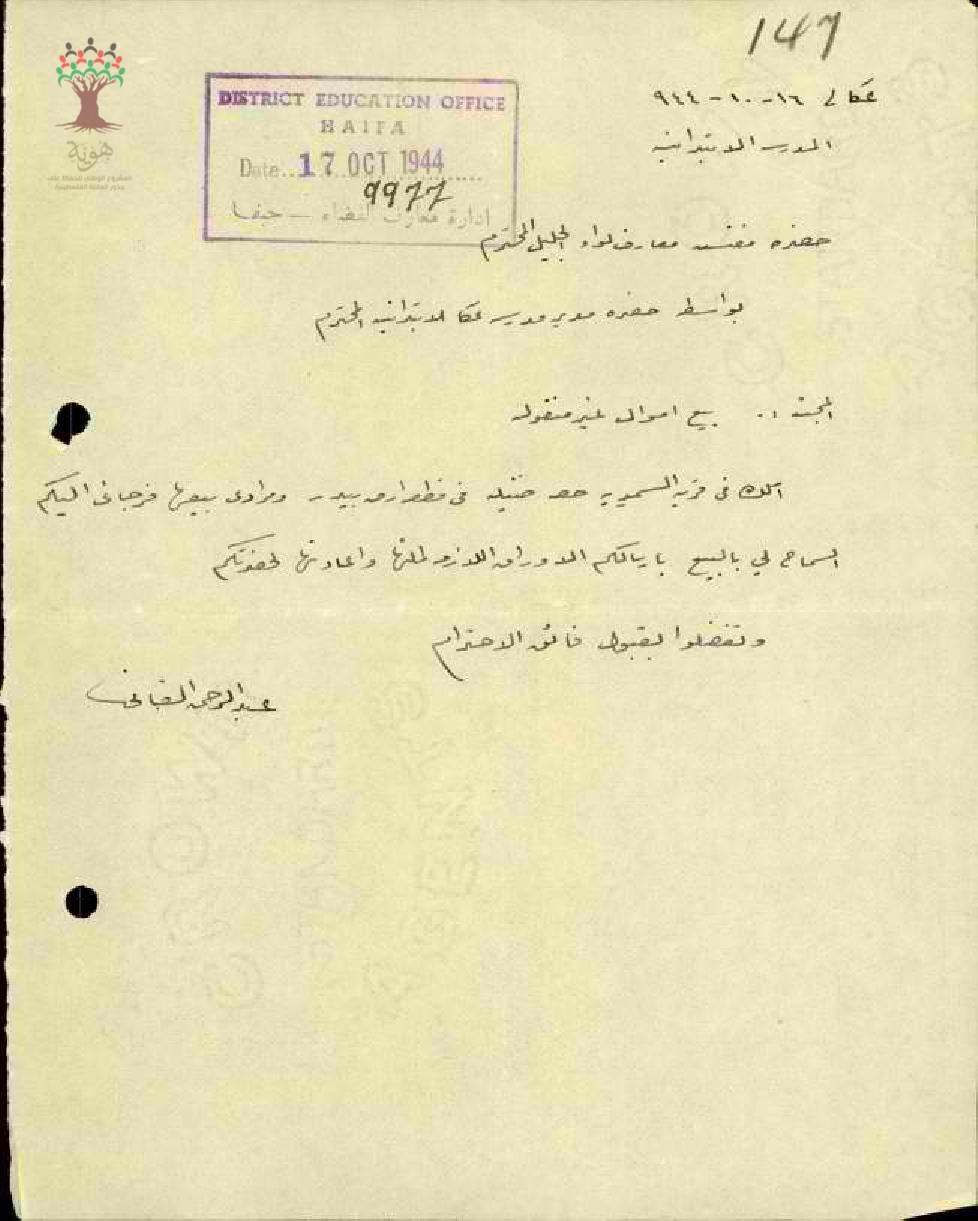 147
هوية
المشروع الوطني للحفاظ على
جذور العائلة الفلسطينية
DISTRICT EDUCATION OFFICE
HAIFA
Date..17 OCT 1944
9977
ادارة معارف القضاء - حيفا
عكا في ١٦-١٠-٩٤٤
المدرسة الابتدائية
حضرة مفتش معارف لواء الجليل المحترم
بواسطة حضرة مدير مدرسة عكا الابتدائية المحترم
المبحث :. بيع اموال غير منقولة
املك في قرية السميرية حصة ضئيلة في قطع ارض بيدر ومرادي بيعها فرجائي اليكم
السماح لي بالبيع بارسالكم الاوراق اللازمة لملئها واعادتها لحضرتكم
وتفضلوا بقبول فائق الاحترام
عبد الرحمن